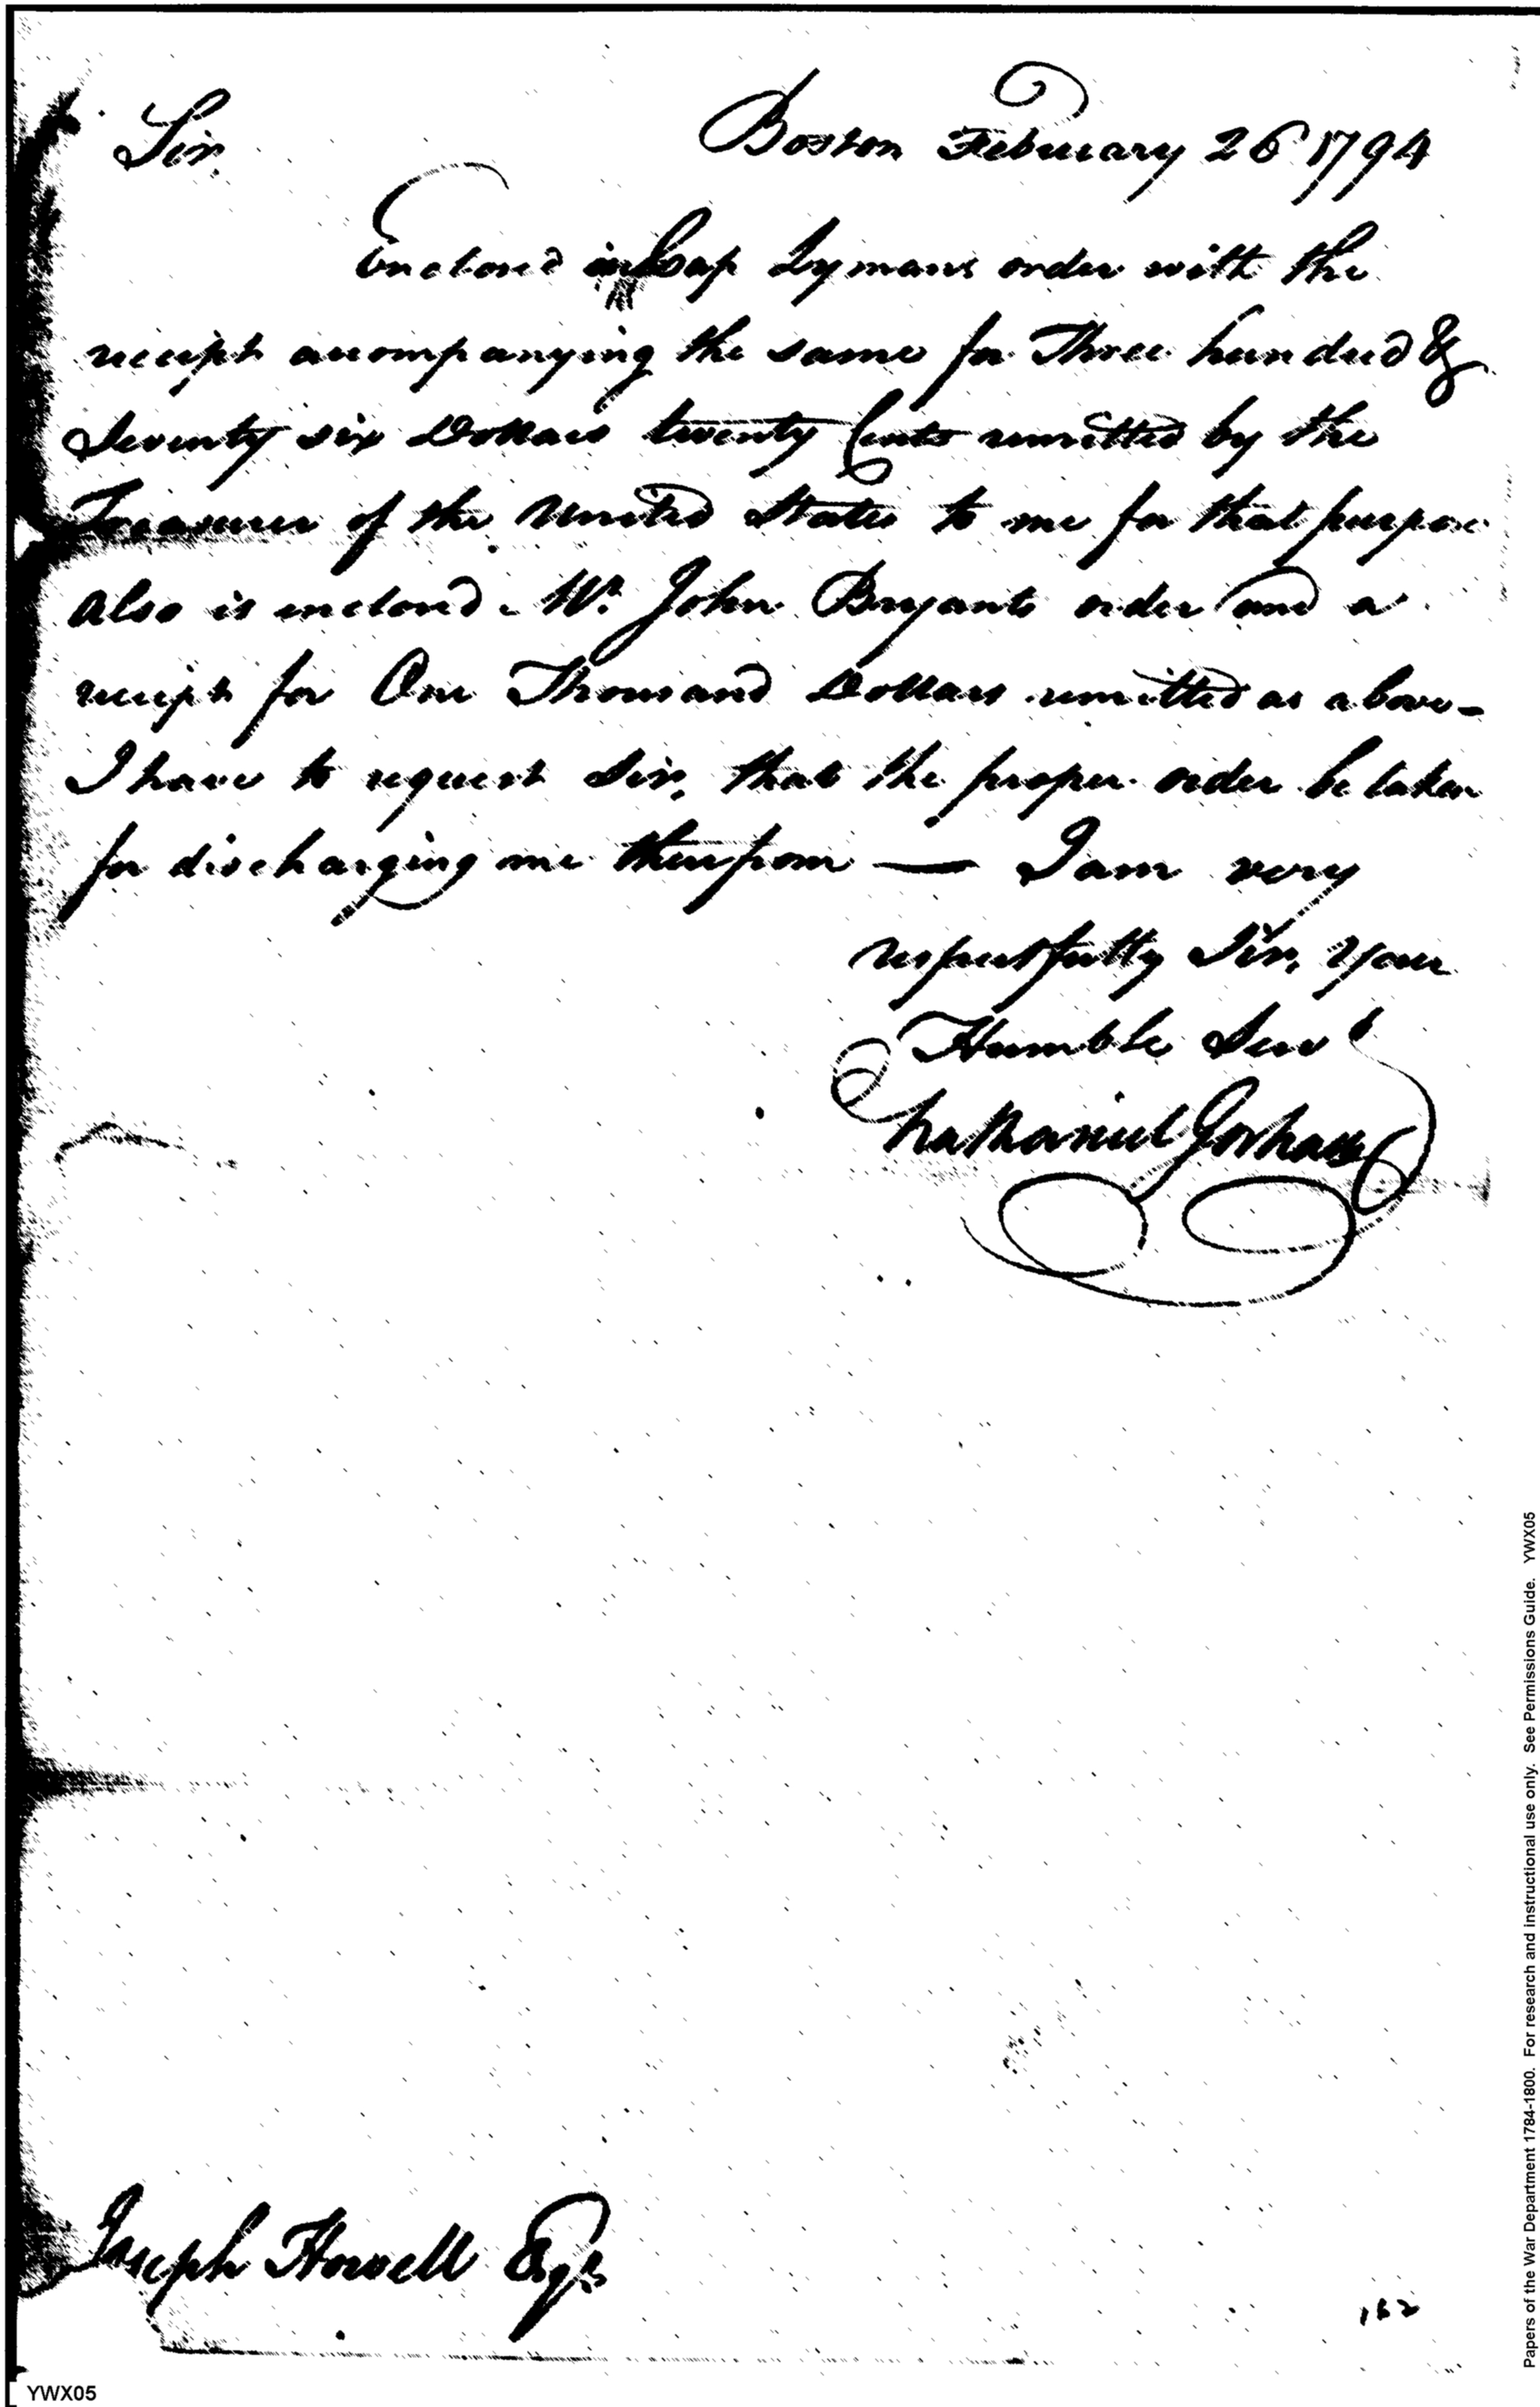 Sir. Boston February 26 1794
Enclosed is Cap Lymans order with the
receipt accompanying the same for Three hundred &
Seventy six Dollars twenty Cents remitted by the
Treasurer of the United States to me for that purpose
also is enclosed Mr. John Bryants order and a
receipt for One Thousand Dollars remitted as above-
I have to request Sir, that the proper order be taken
for discharging me therefrom — I am very
respectfully Sir, Your
Humble Servt
Nathaniel Gorham
Joseph Howell Esqr
162
YWX05
Papers of the War Department 1784-1800. For research and instructional use only. See Permissions Guide. YWX05